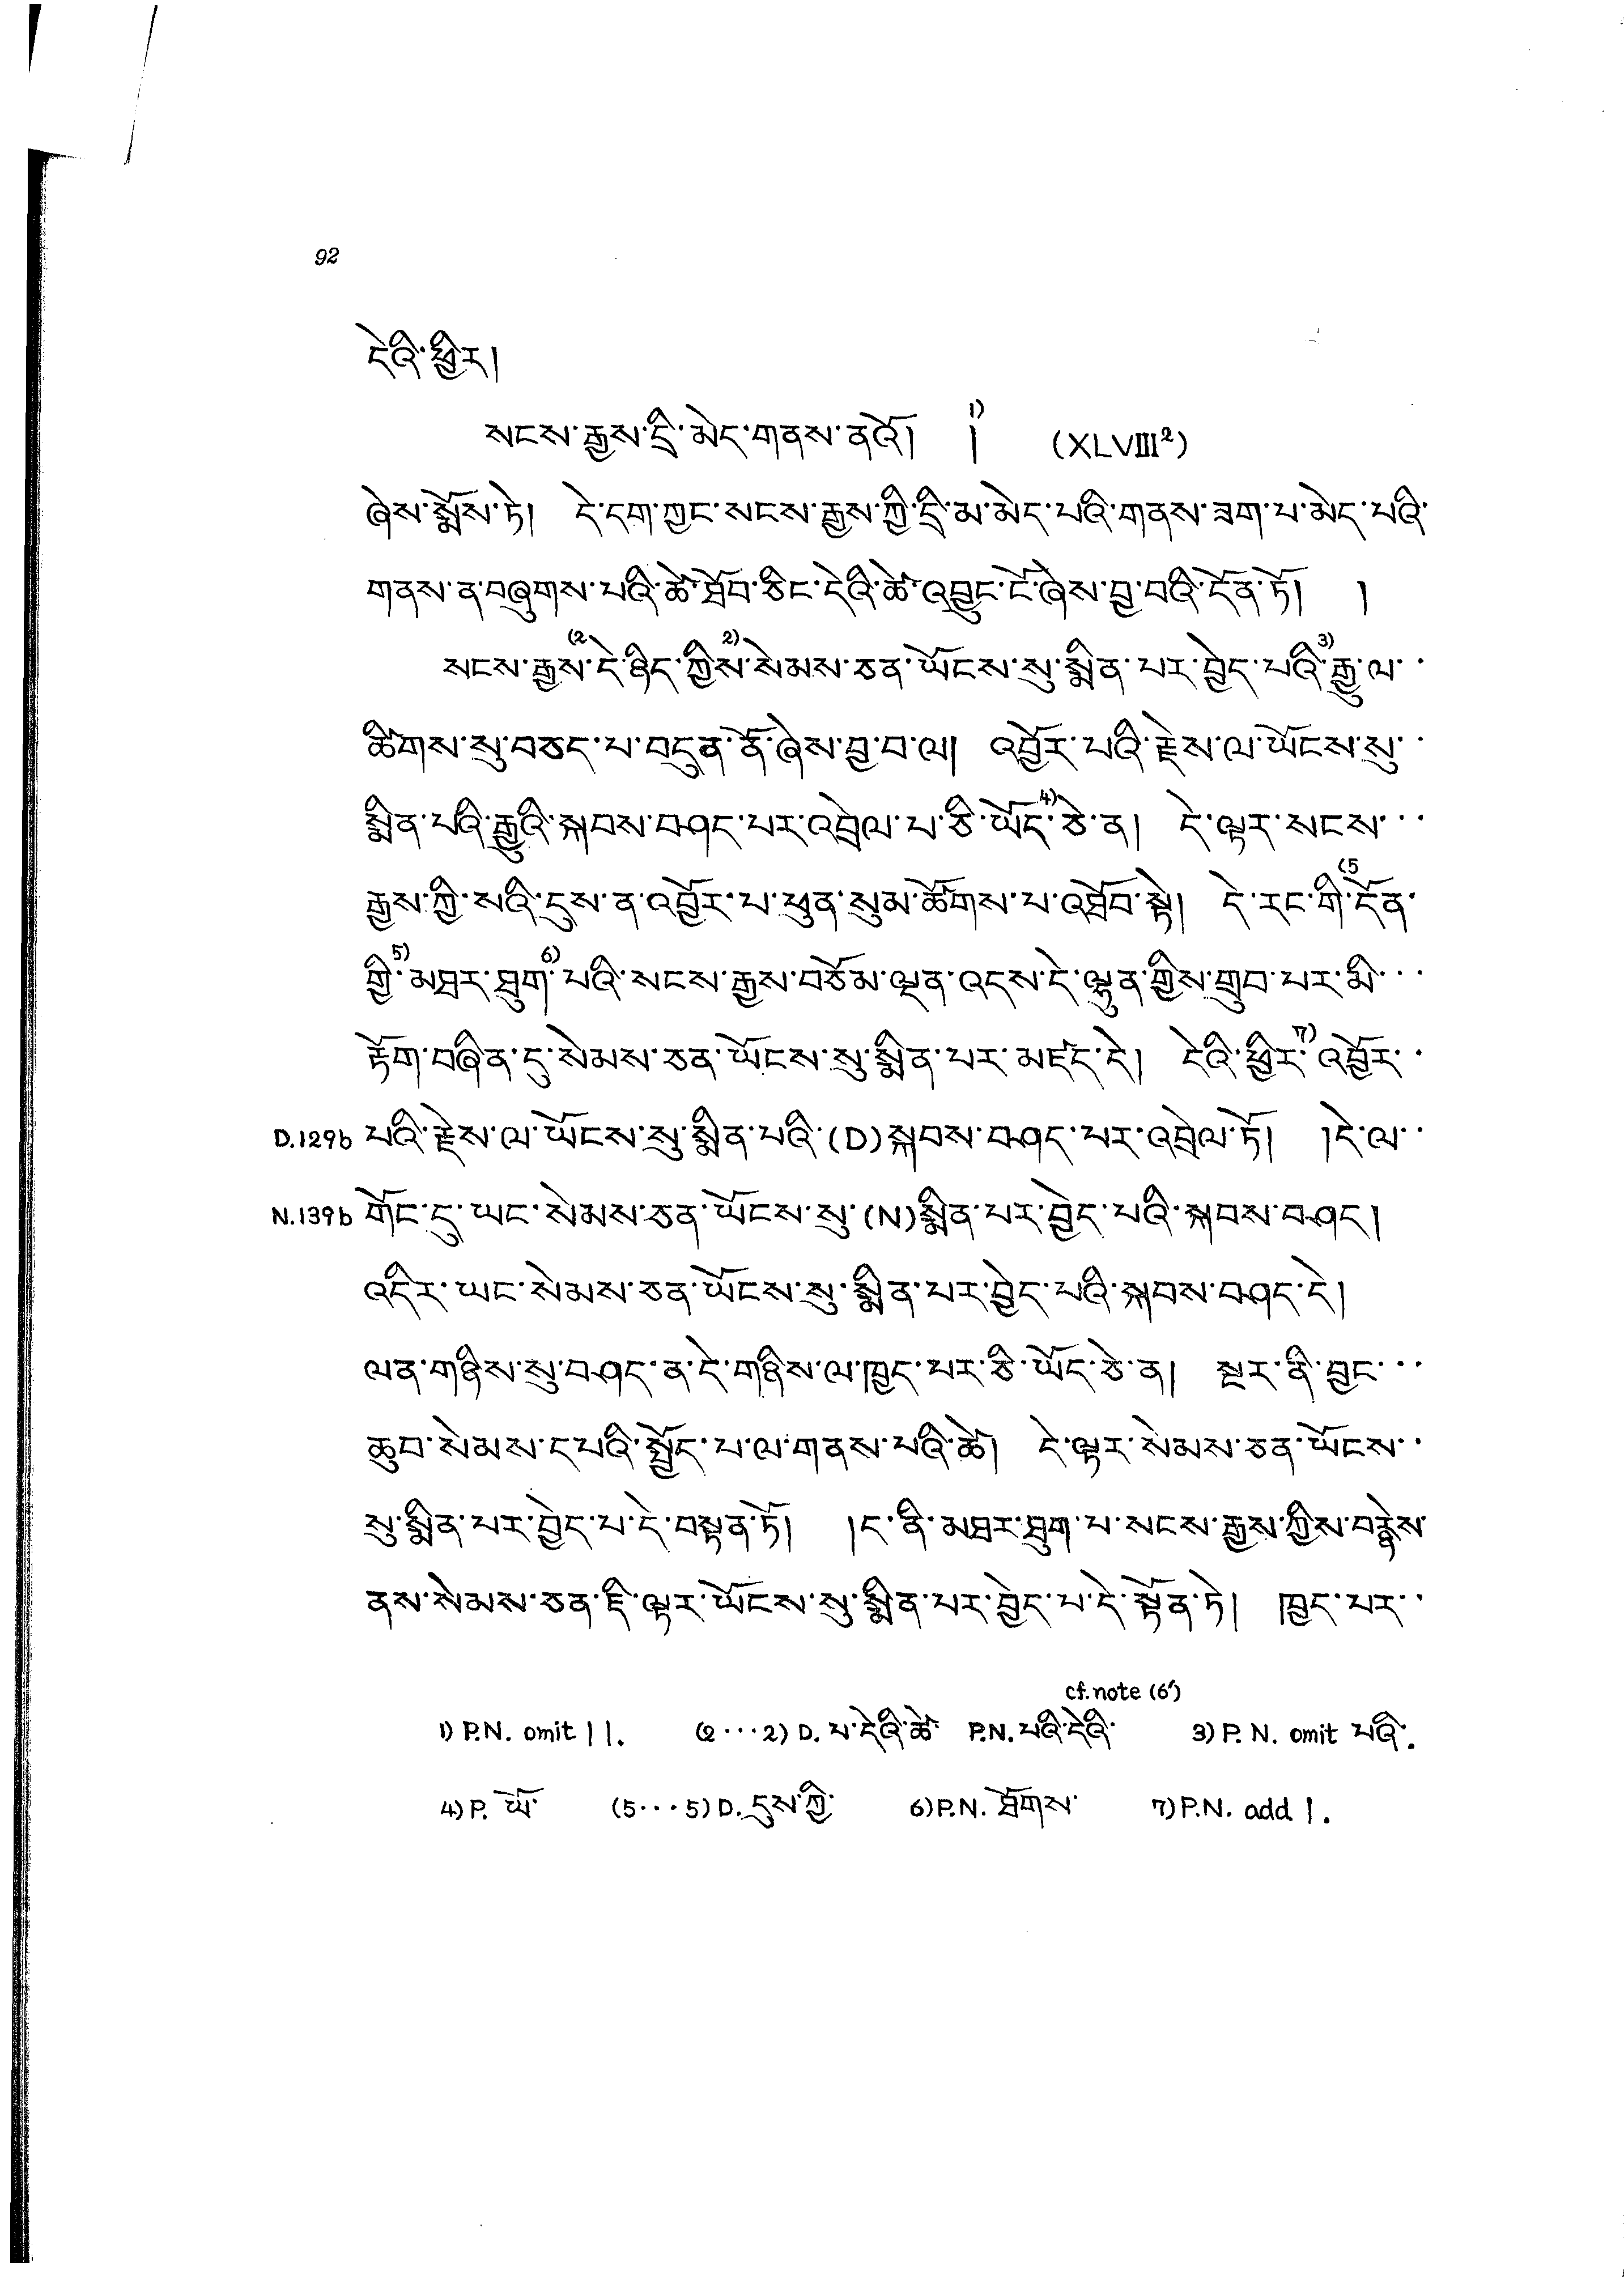 92
དེའི་ཕྱིར།
སངས་རྒྱས་དྲི་མེད་གནས་ནའོ། །1) (XLVIII²)
ཞེས་སྨོས་ཏེ། དེ་དག་ཀྱང་སངས་རྒྱས་ཀྱི་དྲི་མ་མེད་པའི་གནས་ཟག་པ་མེད་པའི་
གནས་ན་བཞུགས་པའི་ཚེ་ཐོབ་ཅིང་དེའི་ཚེ་འབྱུང་ངོ་ཞེས་བྱ་བའི་དོན་ཏོ། །
སངས་རྒྱས་(2དེ་ཉིད་ཀྱིས་2)སེམས་ཅན་ཡོངས་སུ་སྨིན་པར་བྱེད་པའི་3)རྒྱུ་ལ་··
ཚིགས་སུ་བཅད་པ་བདུན་ནོ་ཞེས་བྱ་བ་ལ། འབྱོར་པའི་རྗེས་ལ་ཡོངས་སུ་··
སྨིན་པའི་རྒྱུའི་སྐབས་བཤད་པར་འབྲེལ་པ་ཅི་ཡོད་4)ཅེ་ན། དེ་ལྟར་སངས་···
རྒྱས་ཀྱི་སའི་དུས་ན་འབྱོར་པ་ཕུན་སུམ་ཚོགས་པ་འཐོབ་སྟེ། དེ་རང་གི་(5དོན་
གྱི་5)མཐར་ཐུག་6)པའི་སངས་རྒྱས་བཅོམ་ལྡན་འདས་དེ་ལྷུན་གྱིས་གྲུབ་པར་མི་···
རྟོག་བཞིན་དུ་སེམས་ཅན་ཡོངས་སུ་སྨིན་པར་མཛད་དེ། དེའི་ཕྱིར་7)འབྱོར་··
D.129b པའི་རྗེས་ལ་ཡོངས་སུ་སྨིན་པའི་(D)སྐབས་བཤད་པར་འབྲེལ་ཏོ། །དེ་ལ་··
N.139b གོང་དུ་ཡང་སེམས་ཅན་ཡོངས་སུ་(N)སྨིན་པར་བྱེད་པའི་སྐབས་བཤད།
འདིར་ཡང་སེམས་ཅན་ཡོངས་སུ་སྨིན་པར་བྱེད་པའི་སྐབས་བཤད་དེ།
ལན་གཉིས་སུ་བཤད་ན་དེ་གཉིས་ལ་ཁྱད་པར་ཅི་ཡོད་ཅེ་ན། སྔར་ནི་བྱང་···
ཆུབ་སེམས་དཔའི་སྤྱོད་པ་ལ་གནས་པའི་ཚེ། དེ་ལྟར་སེམས་ཅན་ཡོངས་··
སུ་སྨིན་པར་བྱེད་པ་དེ་བསྟན་ཏོ། །ད་ནི་མཐར་ཐུག་པ་སངས་རྒྱས་ཀྱིས་བརྙེས་
ནས་སེམས་ཅན་ཇི་ལྟར་ཡོངས་སུ་སྨིན་པར་བྱེད་པ་དེ་སྟོན་ཏེ། ཁྱད་པར་··
cf. note (6')
1) P.N. omit ། །. (2···2) D. པ་དེའི་ཚེ་ P.N. པའི་དེའི་ 3) P. N. omit པའི་.
4) P. ཡོ་ (5···5) D. དུས་ཀྱི་ 6) P.N. ཐོགས་ 7) P.N. add །.